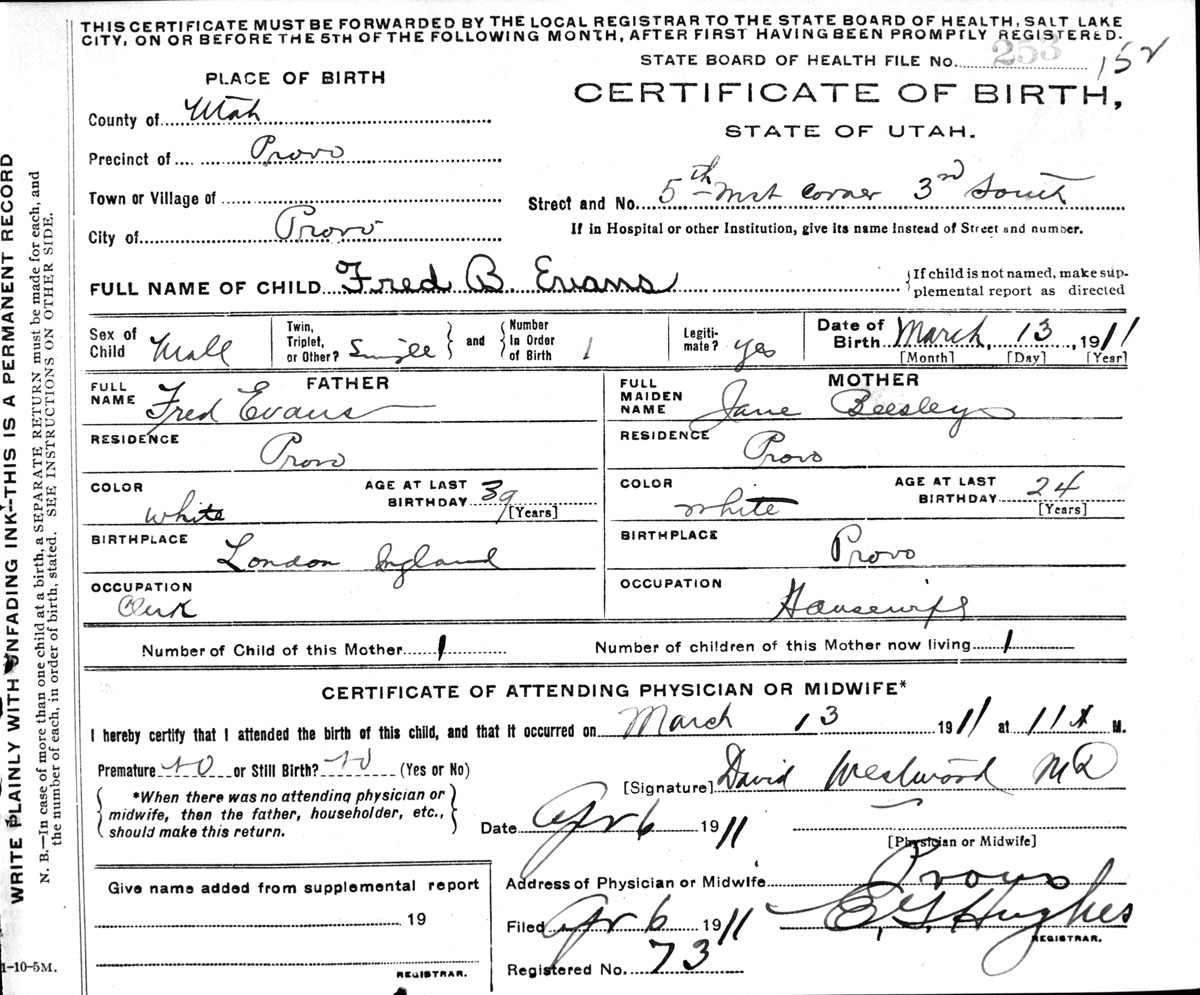 THIS CERTIFICATE MUST BE FORWARDED BY THE LOCAL REGISTRAR TO THE STATE BOARD OF HEALTH, SALT LAKE
CITY, ON OR BEFORE THE 5TH OF THE FOLLOWING MONTH, AFTER FIRST HAVING BEEN PROMPTLY REGISTERED.
STATE BOARD OF HEALTH FILE No. 253 152
PLACE OF BIRTH
CERTIFICATE OF BIRTH,
STATE OF UTAH.
County of Utah
Precinct of Provo
Town or Village of
City of Provo
Street and No. 5th West corner 3rd South
If in Hospital or other Institution, give its name instead of Street and number.
FULL NAME OF CHILD Fred B. Evans
{If child is not named, make sup-
plemental report as directed
Sex of Child Male
Twin, Triplet, or Other? Single } and { Number In Order of Birth 1
Legiti-mate? yes
Date of Birth March, 13, 1911
[Month] [Day] [Year]
FATHER
FULL NAME Fred Evans
RESIDENCE Provo
COLOR white
AGE AT LAST BIRTHDAY 39 [Years]
BIRTHPLACE London England
OCCUPATION Clerk
MOTHER
FULL MAIDEN NAME Jane Beesley
RESIDENCE Provo
COLOR white
AGE AT LAST BIRTHDAY 24 [Years]
BIRTHPLACE Provo
OCCUPATION Housewife
Number of Child of this Mother 1
Number of children of this Mother now living 1
CERTIFICATE OF ATTENDING PHYSICIAN OR MIDWIFE*
I hereby certify that I attended the birth of this child, and that it occurred on March 13 1911 at 11 A M.
Premature no or Still Birth? no (Yes or No)
{ *When there was no attending physician or
midwife, then the father, householder, etc.,
should make this return. }
[Signature] David Westwood MD
Date Apr 6 1911
[Physician or Midwife]
Give name added from supplemental report
19
REGISTRAR.
Address of Physician or Midwife Provo
Filed Apr 6 1911 E. G. Hughes
REGISTRAR.
Registered No. 73
1-10-5M.
WRITE PLAINLY WITH UNFADING INK--THIS IS A PERMANENT RECORD
N. B.—In case of more than one child at a birth, a SEPARATE RETURN must be made for each, and
the number of each, in order of birth, stated. SEE INSTRUCTIONS ON OTHER SIDE.